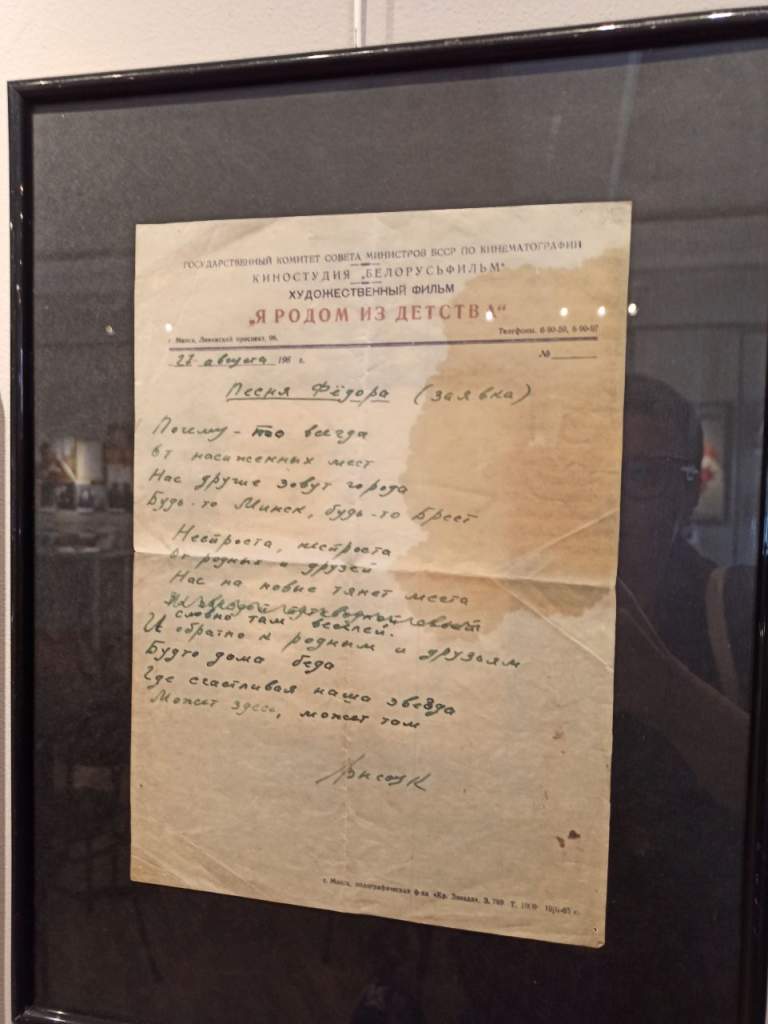 ГОСУДАРСТВЕННЫЙ КОМИТЕТ СОВЕТА МИНИСТРОВ БССР ПО КИНЕМАТОГРАФИИ
КИНОСТУДИЯ „БЕЛОРУСЬФИЛЬМ“
ХУДОЖЕСТВЕННЫЙ ФИЛЬМ
„Я РОДОМ ИЗ ДЕТСТВА“
г. Минск, Ленинский проспект, 98. Телефоны:
27 августа 196 г. №
Песня Фёдора (заявка)
Почему-то всегда
От насиженных мест
Нас другие зовут города
Будь-то Минск, будь-то Брест
Неспроста, неспроста
От родных и друзей
Нас на новые тянет места
словно там веселей.
И обратно к родным и друзьям
Будто дома беда
Где счастливая наша звезда
Может здесь, может там
г. Минск, полиграфическая ф-ка «Кр. Звезда», З. 789